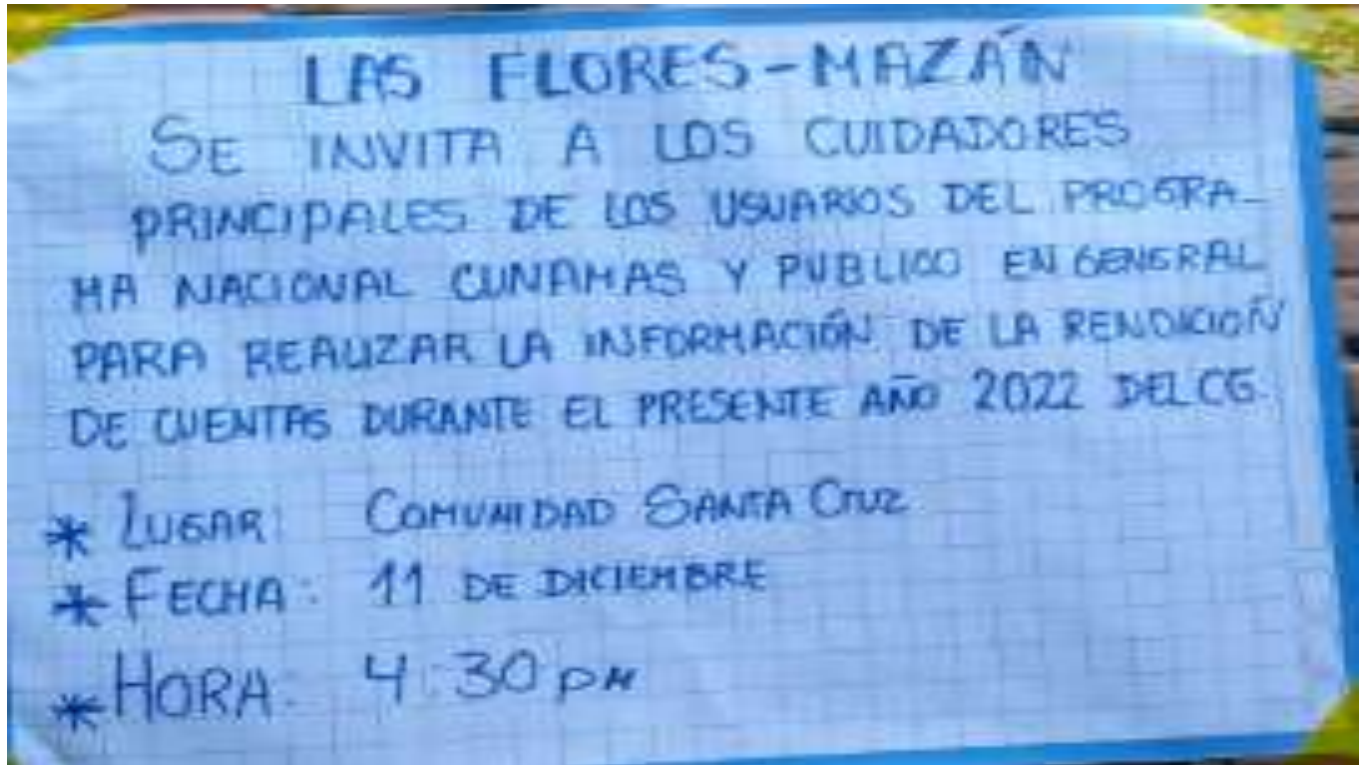 LAS FLORES-MAZÁN
SE INVITA A LOS CUIDADORES
PRINCIPALES DE LOS USUARIOS DEL PROGRA-
MA NACIONAL CUNAMAS Y PUBLICO EN GENERAL
PARA REALIZAR LA INFORMACIÓN DE LA RENDICIÓN
DE CUENTAS DURANTE EL PRESENTE AÑO 2022 DEL CG.
* LUGAR: COMUNIDAD SANTA CRUZ
* FECHA: 11 DE DICIEMBRE
* HORA: 4:30 PM